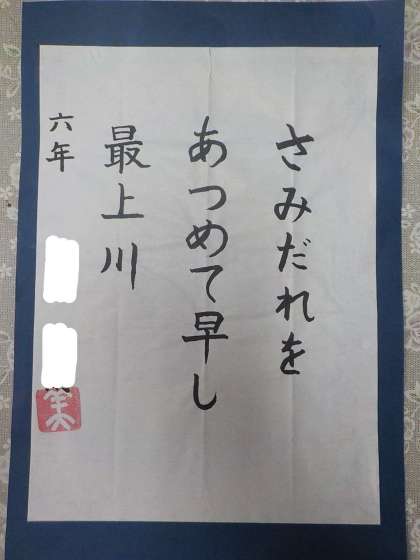 さみだれを
あつめて早し
最上川
六年